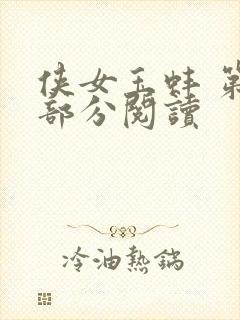 侠女玉蚌 第
部分閱讀
冷油熱鍋